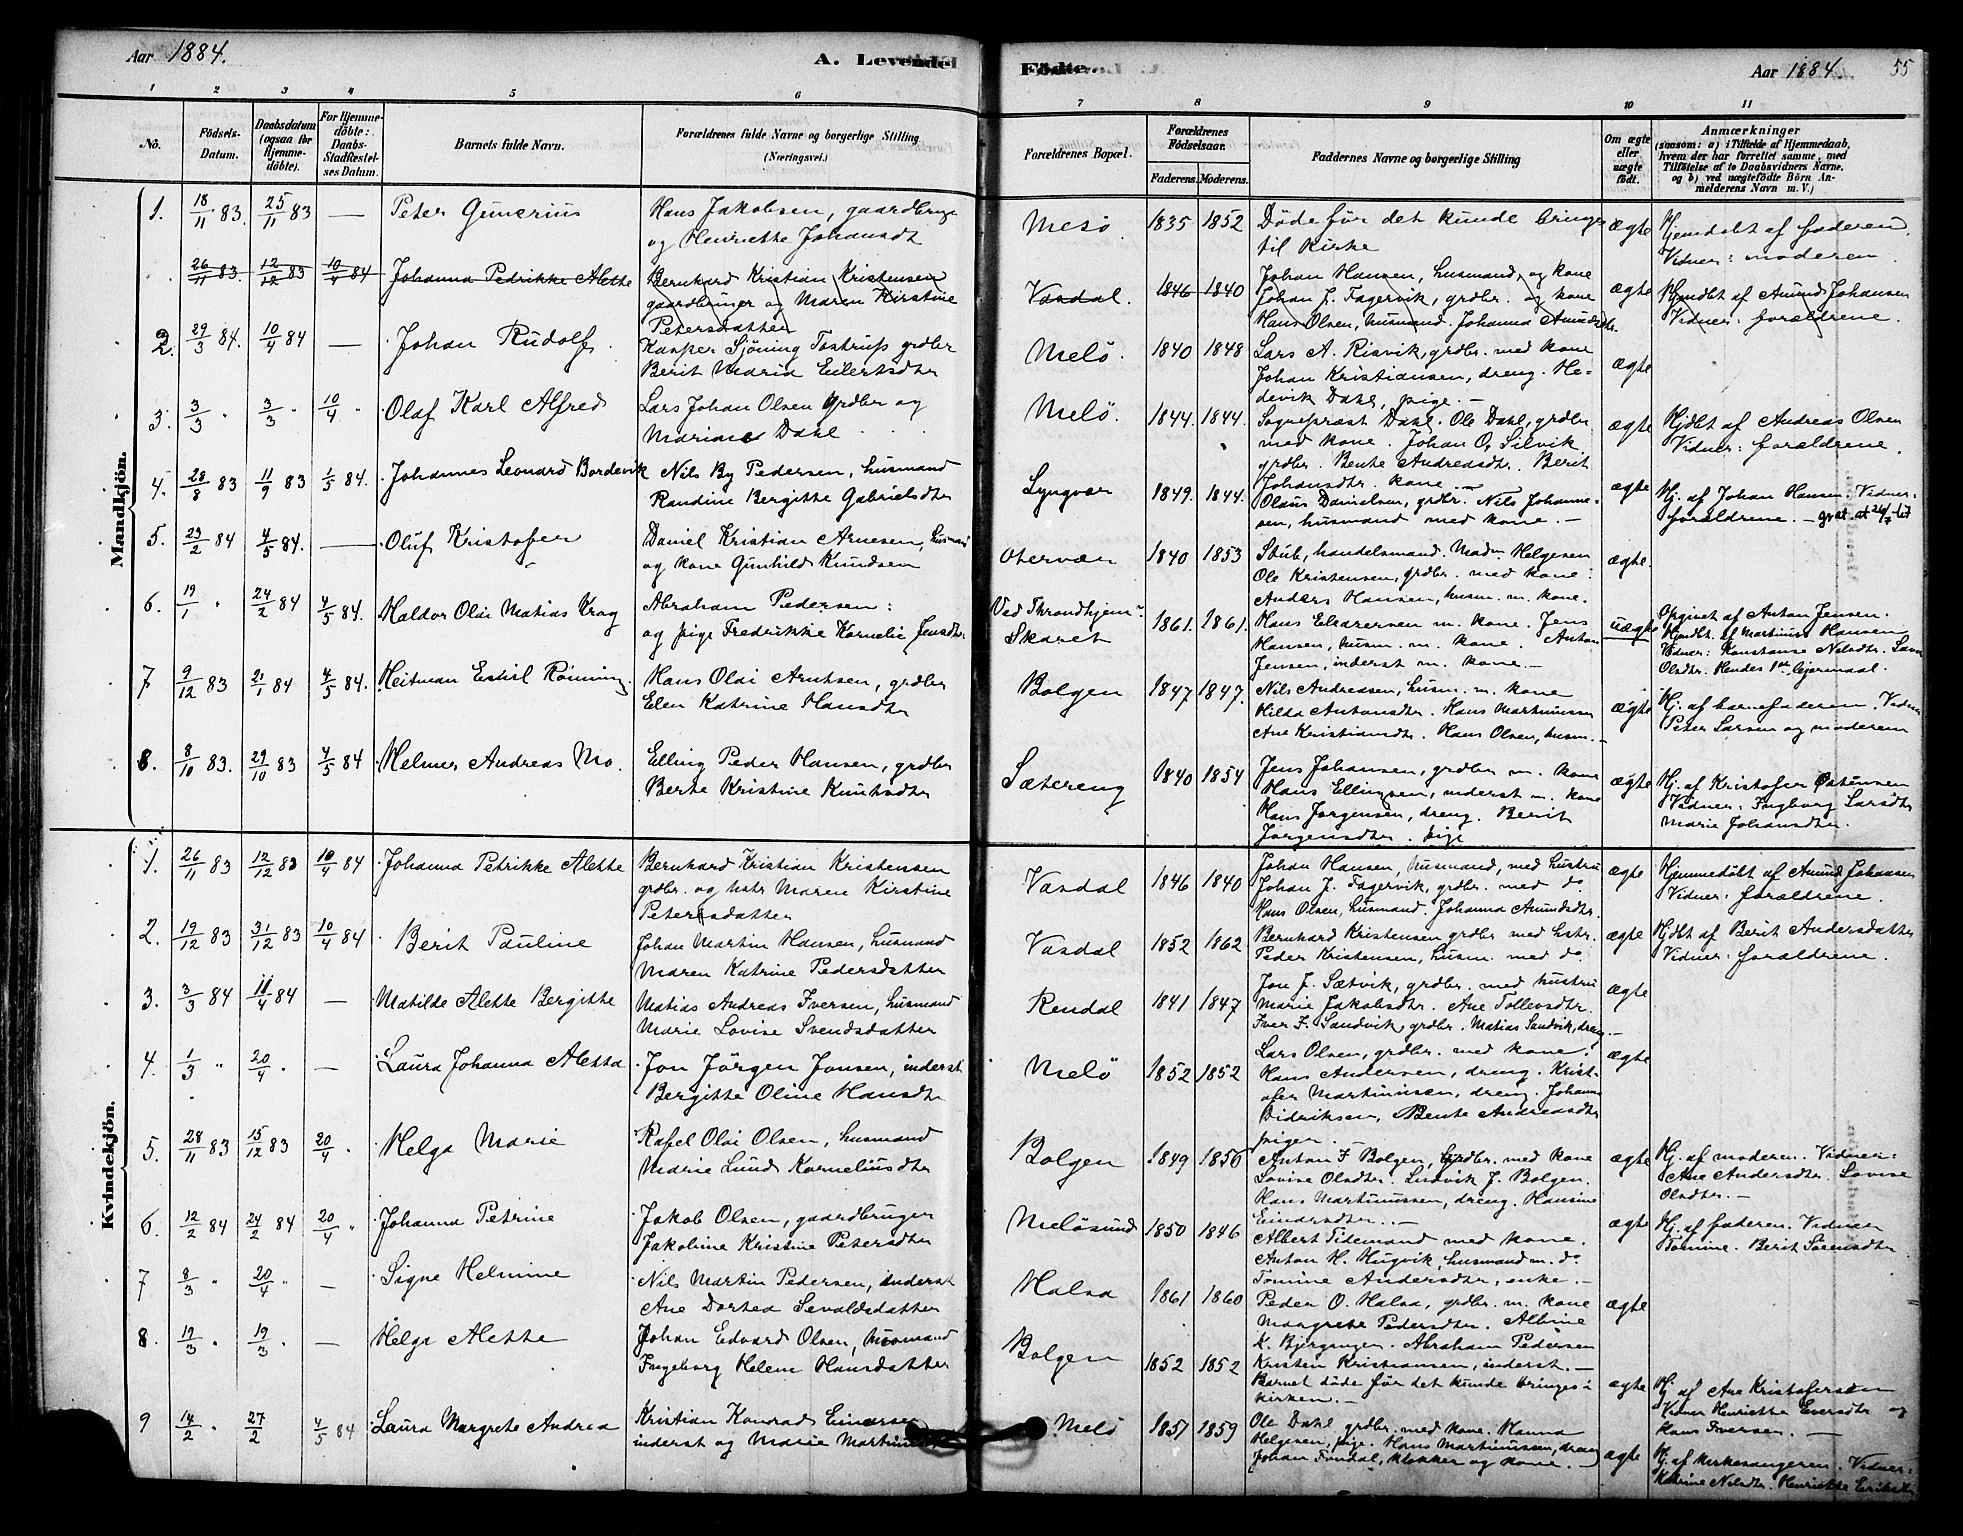 Aar 1884.
A. Levende
Fødte.
Aar 1884.
55
1 2 3 4 5 6 7 8 9 10 11
No.
Fødsels-
Datum.
Daabsdatum
(ogsaa for
Hjemme-
døbte).
For Hjemme-
døbte:
Daabs-
Stadfæstel-
ses Datum.
Barnets fulde Navn.
Forældrenes fulde Navne og borgerlige Stilling
(Næringsvei.)
Forældrenes Bopæl.
Forældrenes
Fødselsaar.
Faderens. Moderens.
Faddernes Navne og borgerlige Stilling
Om ægte
eller
uægte
født.
Anmærkninger
(saasom: a) i Tilfælde af Hjemmedaab,
hvem der har forrettet samme, med
Tilføielse af to Daabsvidners Navne,
og b) ved uægtefødte Børn An-
melderens Navn m. V.)
Mandkjön.
1. 18/11 83 25/11 83 — Peter Gunerius
Hans Jakobsen, gaardbruger
og Henriette Johansdt
Mesø. 1835 1852
Døde før det kunde bringes
til Kirke
ægte
Hjemdøbt af faderen.
Vidner: moderen.
26/11 83. 12/12 83 10/4 84 Johanna Pedrikke Alette
Bernhard Kristian Kristensen
gaardbruger og Maren Kirstine
Petersdatter
Vasdal. 1846 1840
Johan Hansen, husmand, og kone
Johan J. Fagervik, grdbr. og kone
Hans Olsen, husmand. Johanna Amundsdtr.
ægte
Hjmdbt af Amund Johansen
Vidner: forældrene.
2. 29/3 84. 10/4 84 — Johan Rudolf
Kasper Sjöning Tostrup grdbr
Berit Maria Eilertsdtr
Melö. 1840 1848
Lars A. Risvik, grdbr. med kone
Johan Kristiansen, dreng. He-
devik Dahl, pige.—
ægte
3. 3/3 " 3/3 " 10/4 " Olaf Karl Alfred
Lars Johan Olsen grdbr og
Mariane Dahl
Melö. 1844. 1844.
Sognepræst Dahl. Ole Dahl, grdbr
med kone. Johan O. Silvik
grdbr. Bente Andreasdtr. Berit
Johansdtr. kone.—
ægte
Hjdbt af Andreas Olsen
Vidner: forældrene.
4. 28/8 83 11/9 83 1/5 84. Johannes Leonard Bordevik
Nils By Pedersen, husmand
Randine Bergitte Gabrielsdtr
Lyngvær 1849. 1844.
Olaus Danielsen, grdbr. Nils Johanne-
sen, husmand med kone.—
ægte
Hj. af Johan Hansen. Vidner:
forældrene.—
5. 23/2 84 4/5 84. — Oluf Kristofer
Daniel Kristian Arnesen, husmand
og kone Gunhild Knudsen
Otervær 1840 1853
Stub, handelsmand. Madm Helgesen
Ole Kristensen, grdbr. med kone.
Anders Hansen, husm. m. kone.
ægte.
6. 19/1 " 24/2 84 4/5 84. Haldor Olai Matias Krag
Abraham Pedersen:
og pige Fredrikke Kornelie Jensdtr.
Ved Throndhjem:
Skaret 1861. 1861.
Hans m. kone. Jens
Hansen, husm. m. kone. Anton
Jensen, inderst m. kone.—
uægte
Opgivet af Anton Jensen.
Hjmdbt. af Martinus Hansen
Vidner: Konstanse Nilsdtr.
Olsdtr. Hendes 1ste leiermaal.
7 9/12 83 21/1 84 4/5 84. Heitman Eskil Röining
Hans Olai Arntsen, grdbr
Elen Katrine Hansdtr
Bolgen 1847 1847.
Nils Andreassen, husm. m. kone
Hilda Antonsdtr. Hans Martinussen
Ane Kristiansdtr. Hans Olsen, husm.—
ægte
Hj. af barnefaderen. Vidner
Peter Larsen og moderen
8. 8/10 83. 29/10 83 4/5 84 Helmer Andreas Mo.
Elling Peder Hansen, grdbr
Berte Kristine Knutsdtr
Sætereng 1840 1854
Jens Johansen, grdbr m. kone
Hans Ellingsen, inderst m. kone
Hans Jørgensen, dreng. Berit
Jørgensdtr. pige
ægte
Hj. af Kristofer Østensen
Vidner: Ingborg Larsdtr
Marie Johansdtr.
Kvindekjön.
1. 26/11 83 12/12 83 10/4 84 Johanna Petrikke Alette
Bernhard Kristian Kristensen
grdbr. og hstr Maren Kirstine
Petersdatter
Vasdal 1846 1840
Johan Hansen, husmand, med hustru
Johan J. Fagervik, grdbr. med do
Hans Olsen, husmand. Johanna Amundsdtr.
ægte
Hjemmedöbt af Amund Johansen
Vidner: forældrene.
2. 19/12 83 31/12 83 10/4 84 Berit Pauline
Johan Martin Hansen, husmand
Maren Katrine Pedersdatter
Vasdal 1852 1862
Bernhard Kristensen grdbr med hstr.
Peder Kristensen, husm. med do
ægte
Hjdbt af Berit Andersdatter
Vidner: forældrene.
3. 3/3 84 11/4 84 — Matilde Alette Bergitte
Matias Andreas Iversen, husmand
Marie Lovise Svendsdatter
Rendal 1841 1847
Jon J. Sætvik, grdbr. med hustru
Marie Jakobsdtr. Ane Tollevsdtr.
Iver F. Sandvik, grdbr. Matias Sandvik, dreng—
ægte
4. 1/3 " 20/4 " — Laura Johanna Aletta
Jon Jörgen Jonsen, inderst
Bergitte Oline Hansdtr
Melö 1852 1852
Lars Olsen, grdbr. med kone.
Hans Andersen, dreng. Krist-
ofer Martinussen, dreng. Johan
Didriksen, Bente Andreasdtr
pige.—
ægte
5. 28/11 83 15/12 83 20/4 " Helga Marie
Rafel Olai Olsen, husmand
Marie Lund Korneliusdtr
Bolgen 1849 1850
Anton F Bolgen, grdbr. med kone
Lovise Olsdtr. Ludvik J. Bolgen.
Hans Martinussen, dreng. Hansine
Einarsdtr.—
ægte
Hj. af moderen. Vidner:
Ane Andersdtr. Lovise
Olsdtr.—
6 12/2 84 24/2 84 20/4 " Johanna Petrine
Jakob Olsen, gaardbruger
Jakobine Kristine Petersdtr
Melösund 1850 1846
Albert Tidemand med kone.
Anton H. Hugvik, husmand m. do
Tomine Andersdtr, enke.—
ægte
Hj. af faderen. Vidner
Tomine. Berit Sörensdtr
7 9/3 " 20/4 " — Signe Helmine
Nils Martin Pedersen, inderst
Ane Dortea Sevaldsdatter
Halsa 1861 1860
Peder O. Halsa, grdbr. m. kone
Margrete Pedersdtr. Albine
K. Abraham Pedersen
Kristen Kristiansen, inderst.—
ægte
8 19/3 " 19/3 " — Helga Alette
Johan Edvard Olsen, husmand
Ingeborg Helene Hansdatter
Bolgen 1852 1852
Barnet döde för det kunde bringes i
kirken.—
ægte
Hj. af Ane Kristofersen
Vidner Henriette Eversdtr og
Hans Iversen.—
9 14/2 " 27/2 4/5 84 Laura Margrete Andrea
Kristian Konrad Einarsen
inderst og Marie
Melö 1857 1859
Ole Dahl grdbr. med kone. Hanna
Helgesen, pige. Hans Martinussen, dreng
Johan Fondal, klokker og kone.—
ægte
Hj. af kirkesangeren. Vidner:
Katrine Nilsdtr. Henrikke Eriksdtr